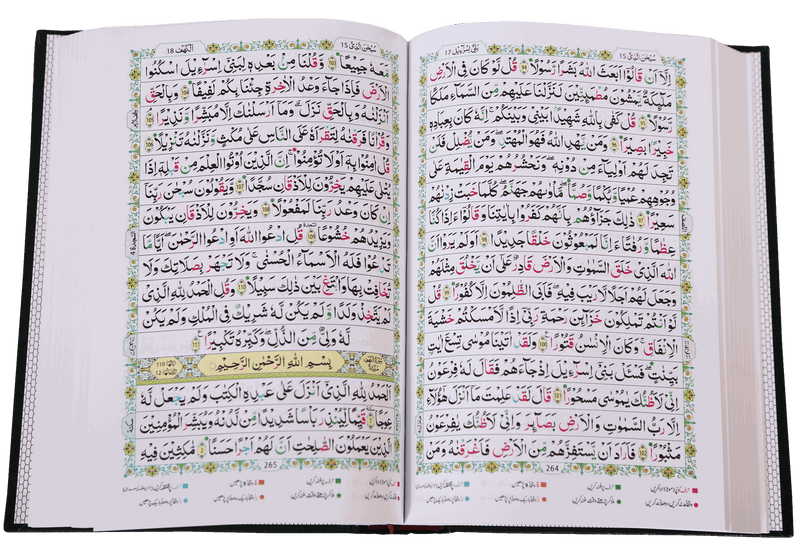 بَنِیْۤ اِسْرَآءِیْل 17
سُبْحٰنَ الَّذِیْۤ 15
اِلَّاۤ اَنْ قَالُوْۤا اَبَعَثَ اللّٰهُ بَشَرًا رَّسُوْلًا ۹۴ قُلْ لَّوْ كَانَ فِی الْاَرْضِ
مَلٰٓىِٕكَةٌ یَّمْشُوْنَ مُطْمَىِٕنِّیْنَ لَنَزَّلْنَا عَلَیْهِمْ مِّنَ السَّمَآءِ مَلَكًا
رَّسُوْلًا ۹۵ قُلْ كَفٰی بِاللّٰهِ شَهِیْدًۢا بَیْنِیْ وَبَیْنَكُمْ ؕ اِنَّهٗ كَانَ بِعِبَادِهٖ
خَبِیْرًۢا بَصِیْرًا ۹۶ وَمَنْ یَّهْدِ اللّٰهُ فَهُوَ الْمُهْتَدِ ۚ وَمَنْ یُّضْلِلْ فَلَنْ
تَجِدَ لَهُمْ اَوْلِیَآءَ مِنْ دُوْنِهٖ ؕ وَنَحْشُرُهُمْ یَوْمَ الْقِیٰمَةِ عَلٰی
وُجُوْهِهِمْ عُمْیًا وَّبُكْمًا وَّصُمًّا ؕ مَاْوٰىهُمْ جَهَنَّمُ ؕ كُلَّمَا خَبَتْ زِدْنٰهُمْ
سَعِیْرًا ۹۷ ذٰلِكَ جَزَآؤُهُمْ بِاَنَّهُمْ كَفَرُوْا بِاٰیٰتِنَا وَقَالُوْۤا ءَاِذَا كُنَّا
عِظَامًا وَّرُفَاتًا ءَاِنَّا لَمَبْعُوْثُوْنَ خَلْقًا جَدِیْدًا ۹۸ اَوَلَمْ یَرَوْا اَنَّ
اللّٰهَ الَّذِیْ خَلَقَ السَّمٰوٰتِ وَالْاَرْضَ قَادِرٌ عَلٰۤی اَنْ یَّخْلُقَ مِثْلَهُمْ
وَجَعَلَ لَهُمْ اَجَلًا لَّا رَیْبَ فِیْهِ ؕ فَاَبَی الظّٰلِمُوْنَ اِلَّا كُفُوْرًا ۹۹ قُلْ
لَّوْ اَنْتُمْ تَمْلِكُوْنَ خَزَآىِٕنَ رَحْمَةِ رَبِّیْۤ اِذًا لَّاَمْسَكْتُمْ خَشْیَةَ
الْاِنْفَاقِ ؕ وَكَانَ الْاِنْسَانُ قَتُوْرًا ۱۰۰ وَلَقَدْ اٰتَیْنَا مُوْسٰی تِسْعَ اٰیٰتٍۭ
بَیِّنٰتٍ فَسْـَٔلْ بَنِیْۤ اِسْرَآءِیْلَ اِذْ جَآءَهُمْ فَقَالَ لَهٗ فِرْعَوْنُ
اِنِّیْ لَاَظُنُّكَ یٰمُوْسٰی مَسْحُوْرًا ۱۰۱ قَالَ لَقَدْ عَلِمْتَ مَاۤ اَنْزَلَ هٰۤؤُلَآءِ
اِلَّا رَبُّ السَّمٰوٰتِ وَالْاَرْضِ بَصَآىِٕرَ ۚ وَاِنِّیْ لَاَظُنُّكَ یٰفِرْعَوْنُ
مَثْبُوْرًا ۱۰۲ فَاَرَادَ اَنْ یَّسْتَفِزَّهُمْ مِّنَ الْاَرْضِ فَاَغْرَقْنٰهُ وَمَنْ
264
سُبْحٰنَ الَّذِیْۤ 15
اَلْكَهْف 18
مَّعَهٗ جَمِیْعًا ۱۰۳ وَّقُلْنَا مِنْۢ بَعْدِهٖ لِبَنِیْۤ اِسْرَآءِیْلَ اسْكُنُوا
الْاَرْضَ فَاِذَا جَآءَ وَعْدُ الْاٰخِرَةِ جِئْنَا بِكُمْ لَفِیْفًا ۱۰۴ وَبِالْحَقِّ
اَنْزَلْنٰهُ وَبِالْحَقِّ نَزَلَ ؕ وَمَاۤ اَرْسَلْنٰكَ اِلَّا مُبَشِّرًا وَّنَذِیْرًا ۱۰۵
وَقُرْاٰنًا فَرَقْنٰهُ لِتَقْرَاَهٗ عَلَی النَّاسِ عَلٰی مُكْثٍ وَّنَزَّلْنٰهُ تَنْزِیْلًا ۱۰۶
قُلْ اٰمِنُوْا بِهٖۤ اَوْ لَا تُؤْمِنُوْا ؕ اِنَّ الَّذِیْنَ اُوْتُوا الْعِلْمَ مِنْ قَبْلِهٖۤ اِذَا
یُتْلٰی عَلَیْهِمْ یَخِرُّوْنَ لِلْاَذْقَانِ سُجَّدًا ۱۰۷ وَّیَقُوْلُوْنَ سُبْحٰنَ رَبِّنَاۤ
اِنْ كَانَ وَعْدُ رَبِّنَا لَمَفْعُوْلًا ۱۰۸ وَیَخِرُّوْنَ لِلْاَذْقَانِ یَبْكُوْنَ
وَیَزِیْدُهُمْ خُشُوْعًا ۱۰۹ قُلِ ادْعُوا اللّٰهَ اَوِ ادْعُوا الرَّحْمٰنَ ؕ اَیًّا مَّا
تَدْعُوْا فَلَهُ الْاَسْمَآءُ الْحُسْنٰی ۚ وَلَا تَجْهَرْ بِصَلَاتِكَ وَلَا
تُخَافِتْ بِهَا وَابْتَغِ بَیْنَ ذٰلِكَ سَبِیْلًا ۱۱۰ وَقُلِ الْحَمْدُ لِلّٰهِ الَّذِیْ
لَمْ یَتَّخِذْ وَلَدًا وَّلَمْ یَكُنْ لَّهٗ شَرِیْكٌ فِی الْمُلْكِ وَلَمْ یَكُنْ
لَّهٗ وَلِیٌّ مِّنَ الذُّلِّ وَكَبِّرْهُ تَكْبِیْرًا ۱۱۱
بِسْمِ اللّٰهِ الرَّحْمٰنِ الرَّحِیْمِ
اَلْحَمْدُ لِلّٰهِ الَّذِیْۤ اَنْزَلَ عَلٰی عَبْدِهِ الْكِتٰبَ وَلَمْ یَجْعَلْ لَّهٗ
عِوَجًا ۱ قَیِّمًا لِّیُنْذِرَ بَاْسًا شَدِیْدًا مِّنْ لَّدُنْهُ وَیُبَشِّرَ الْمُؤْمِنِیْنَ
الَّذِیْنَ یَعْمَلُوْنَ الصّٰلِحٰتِ اَنَّ لَهُمْ اَجْرًا حَسَنًا ۲ مَّاكِثِیْنَ فِیْهِ
265